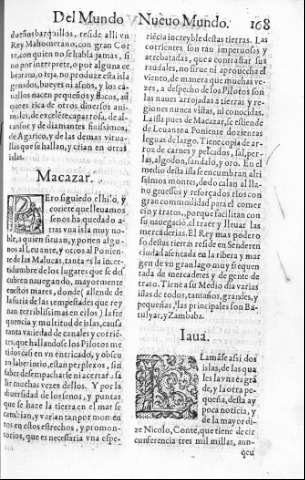 Del Mundo y Nueuo Mundo. 168
dueños barquillos, reside alli vn
Rey Mahometano, con gran Cor
te, con quien no se habla jamas, si
no por interprete, o por alguna ce
no teja, no produze esta isla
ganados, bueyes ni asnos, y los ca
uallos nacen pequeños y flacos,
mas rica de otros diuersos ani
males, de excelēte caparrosa, de al-
canfor y de diamantes finissimos,
de Agarico, y de las demas vitua-
llas que se hallan, y crian en otras
islas.
Macazar.
Ero siguiēdo el hilo, y
conciērto que lleuamos
senos ha quedado a-
tras vna isla muy no-
ble, a quien situan, y ponen algu-
nos al Leuante, y otros al Poniente
de las Malucas, tanta es la incer-
tidumbre de los lugares que se des
cubren nauegando, mayormente
en estos mares, donde (allende de
las tempestades que rey
nan terriblissimas en ellos) la fre
quencia y multitud de islas, causa
tanta variedad de canales y corriē
tes, que hallandose los Pilotos me
tidos casi en vn entricado, y obscu
ro laberintio, estan perplexos, sin
saber desempacharse ni acertar a sa
lir muchas vezes dellos. Y por la
diuersidad de los senos, y puntas
que se haze la tierra en el mar se
cambian, y varian tanto por momen
tos en estos estrechos, y promon-
torios, que es necessaria vna espe-
riēcia increyble destas tierras. Las
corrientes son tan impetuosas y
arrebatadas, que a contrastar sus
raudales, no sirue ni aprouecha el
viento, de manera que muchas ve-
zes, a despecho de los Pilotos son
las naues arrojadas a tierras, y re-
giones nunca vistas, ni conocidas.
La isla pues de Macazar, se estiende
de Leuante a Poniente dozientas
leguas de largo. Tiene copia de ar-
roz de carnes y pescados, sal, per-
las, algodon, sandalo, y oro. En el
medio desta isla se encumbran altis
simos montes, de do calan al lla-
no gruessos y reforçados rios con
gran commodidad para el comer
cio, y tratos, porque facilitan con
su nauegacio, el traer y lleuar las
mercaderias. El Rey mas podero
so destas tierras reside en Senderen
ciudad assentada en la ribera y mar
gen de vn gran lago muy frequen
tada de mercaderes y de gente de
trato. Tiene a su Medio dia varias
islas de todos, tamaños, grandes, y
pequeñas, las principales son Ba-
uliyar, y Zambaba.
Iaua.
Lamāse assi dos
islas, de las qua
les la vna es grā
de, y la otra pe-
queña, desta ay
poca noticia, y
de la mayor di-
ze Nicolo, Conte, que tiene de cir
cunferencia tres mil millas, aun-
que